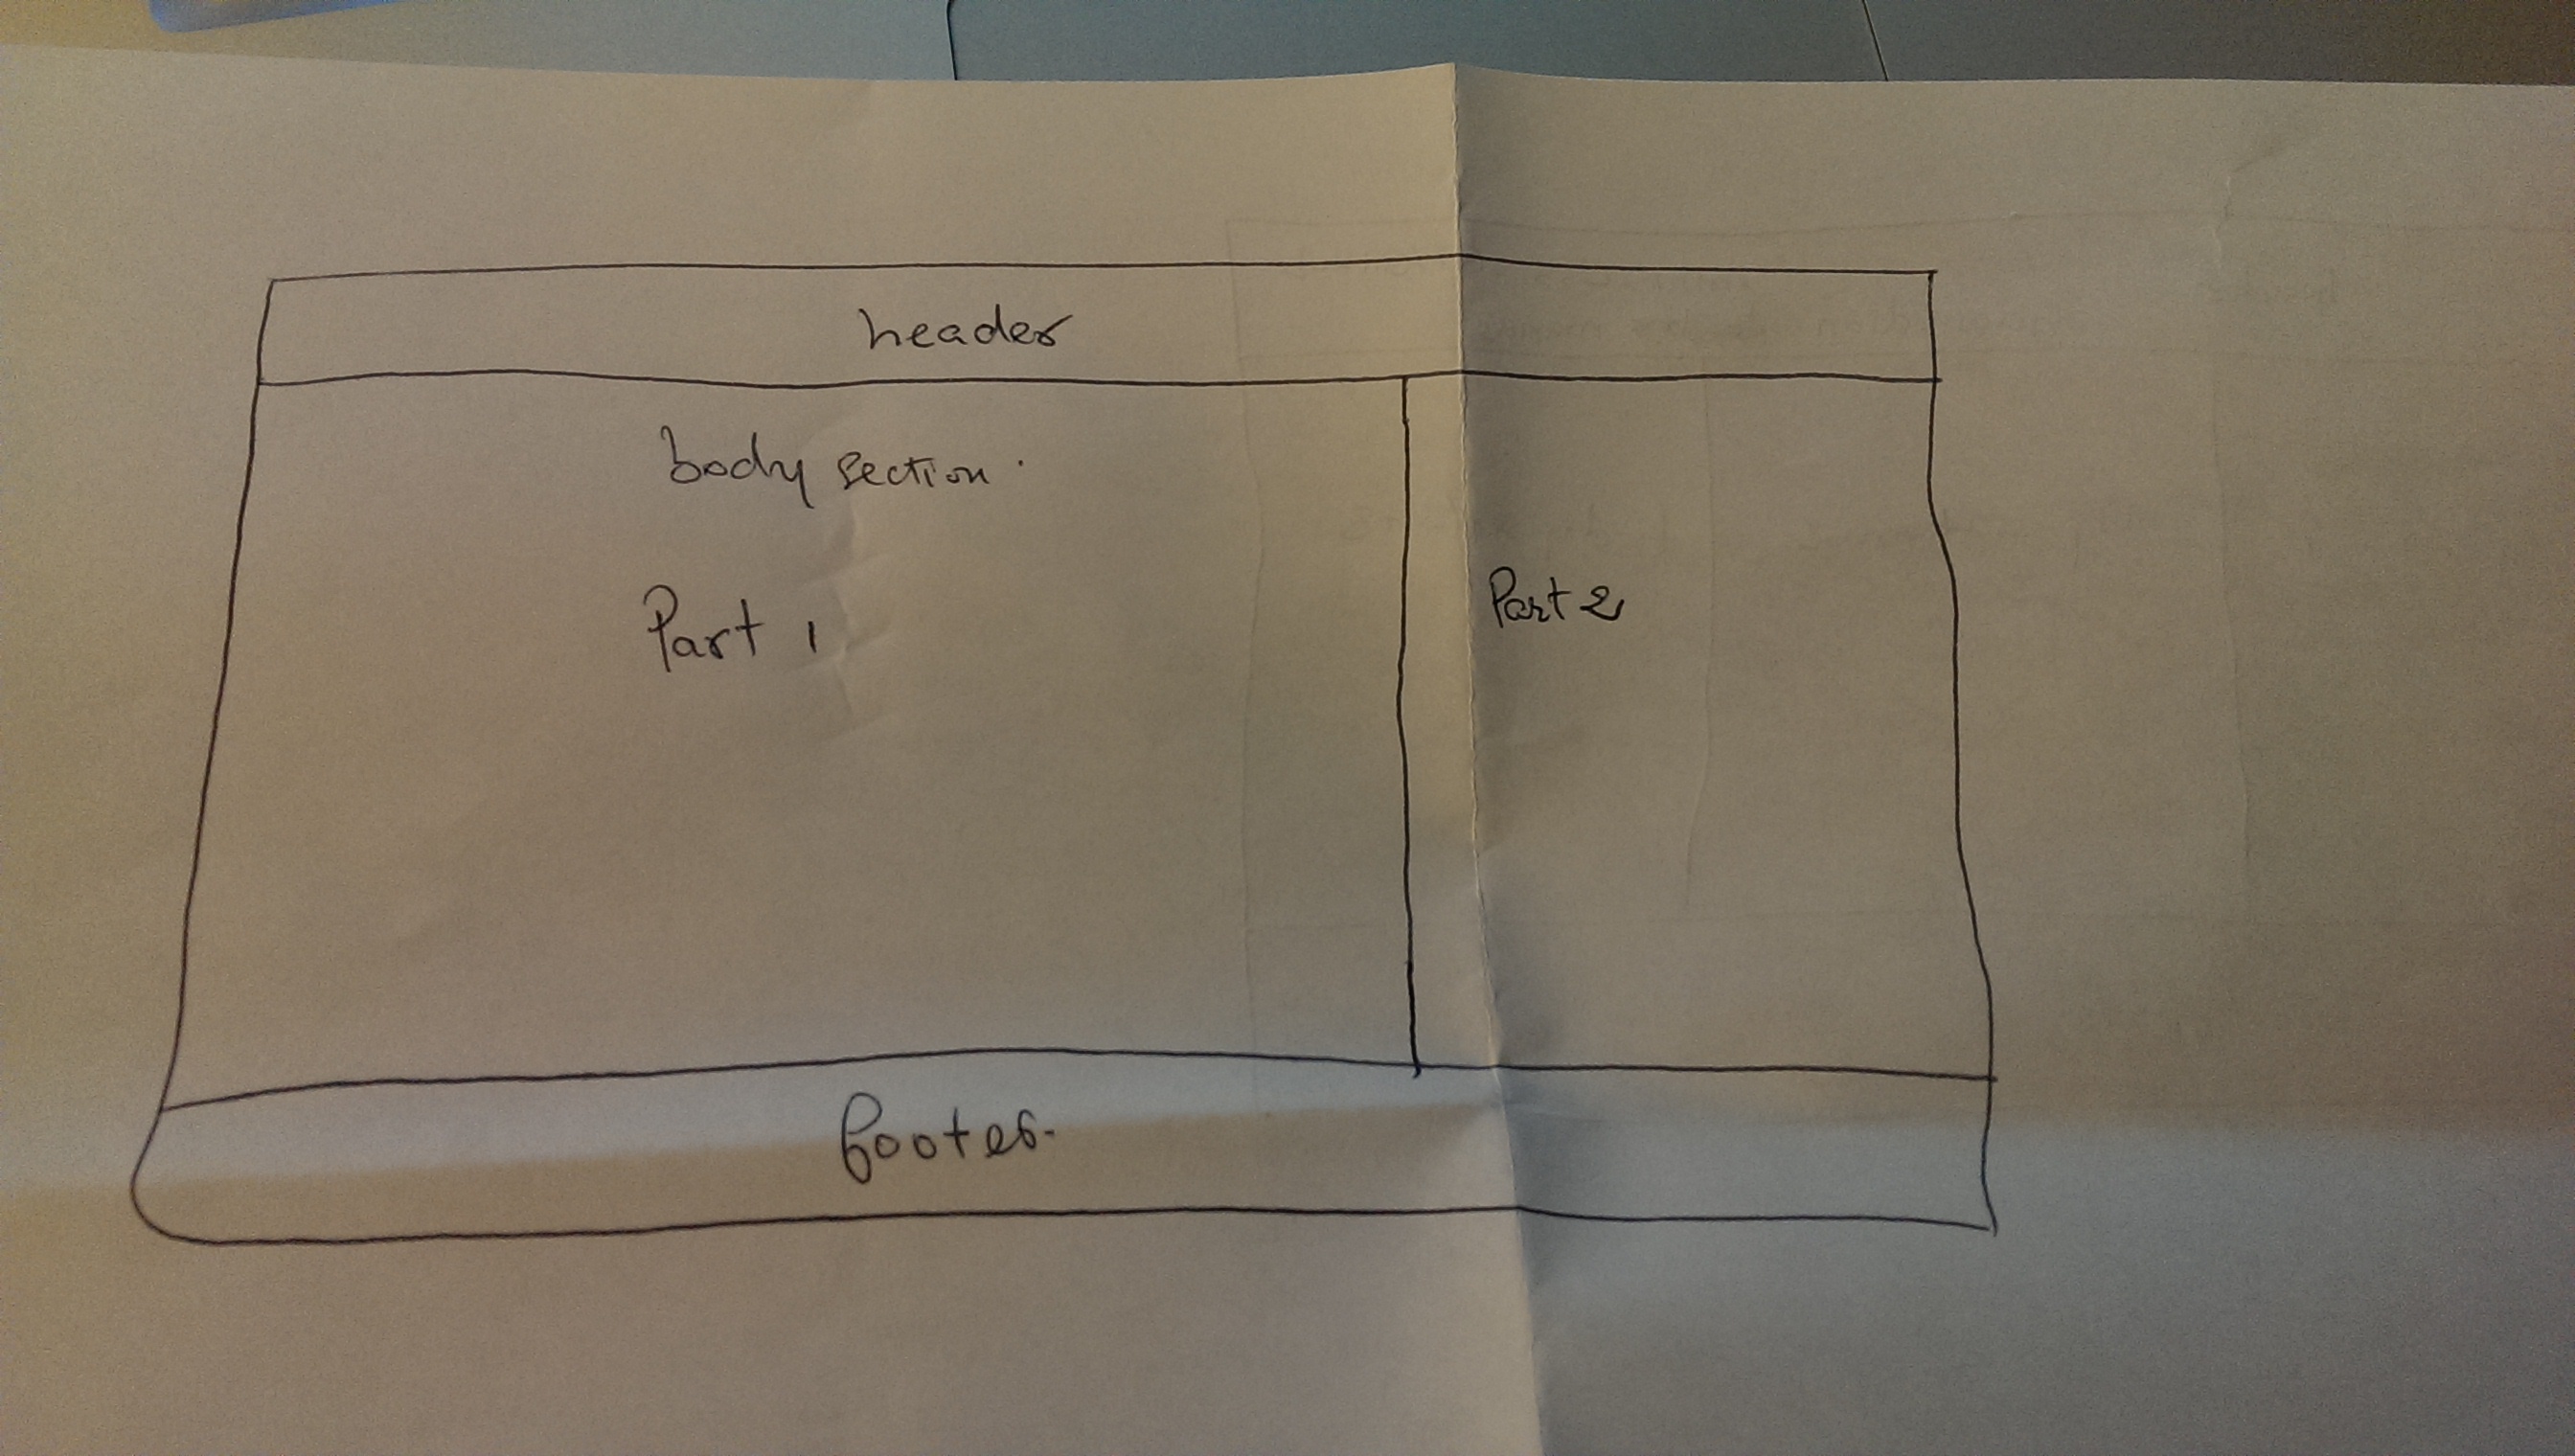 header
body section.
Part 1
Part 2
footer.